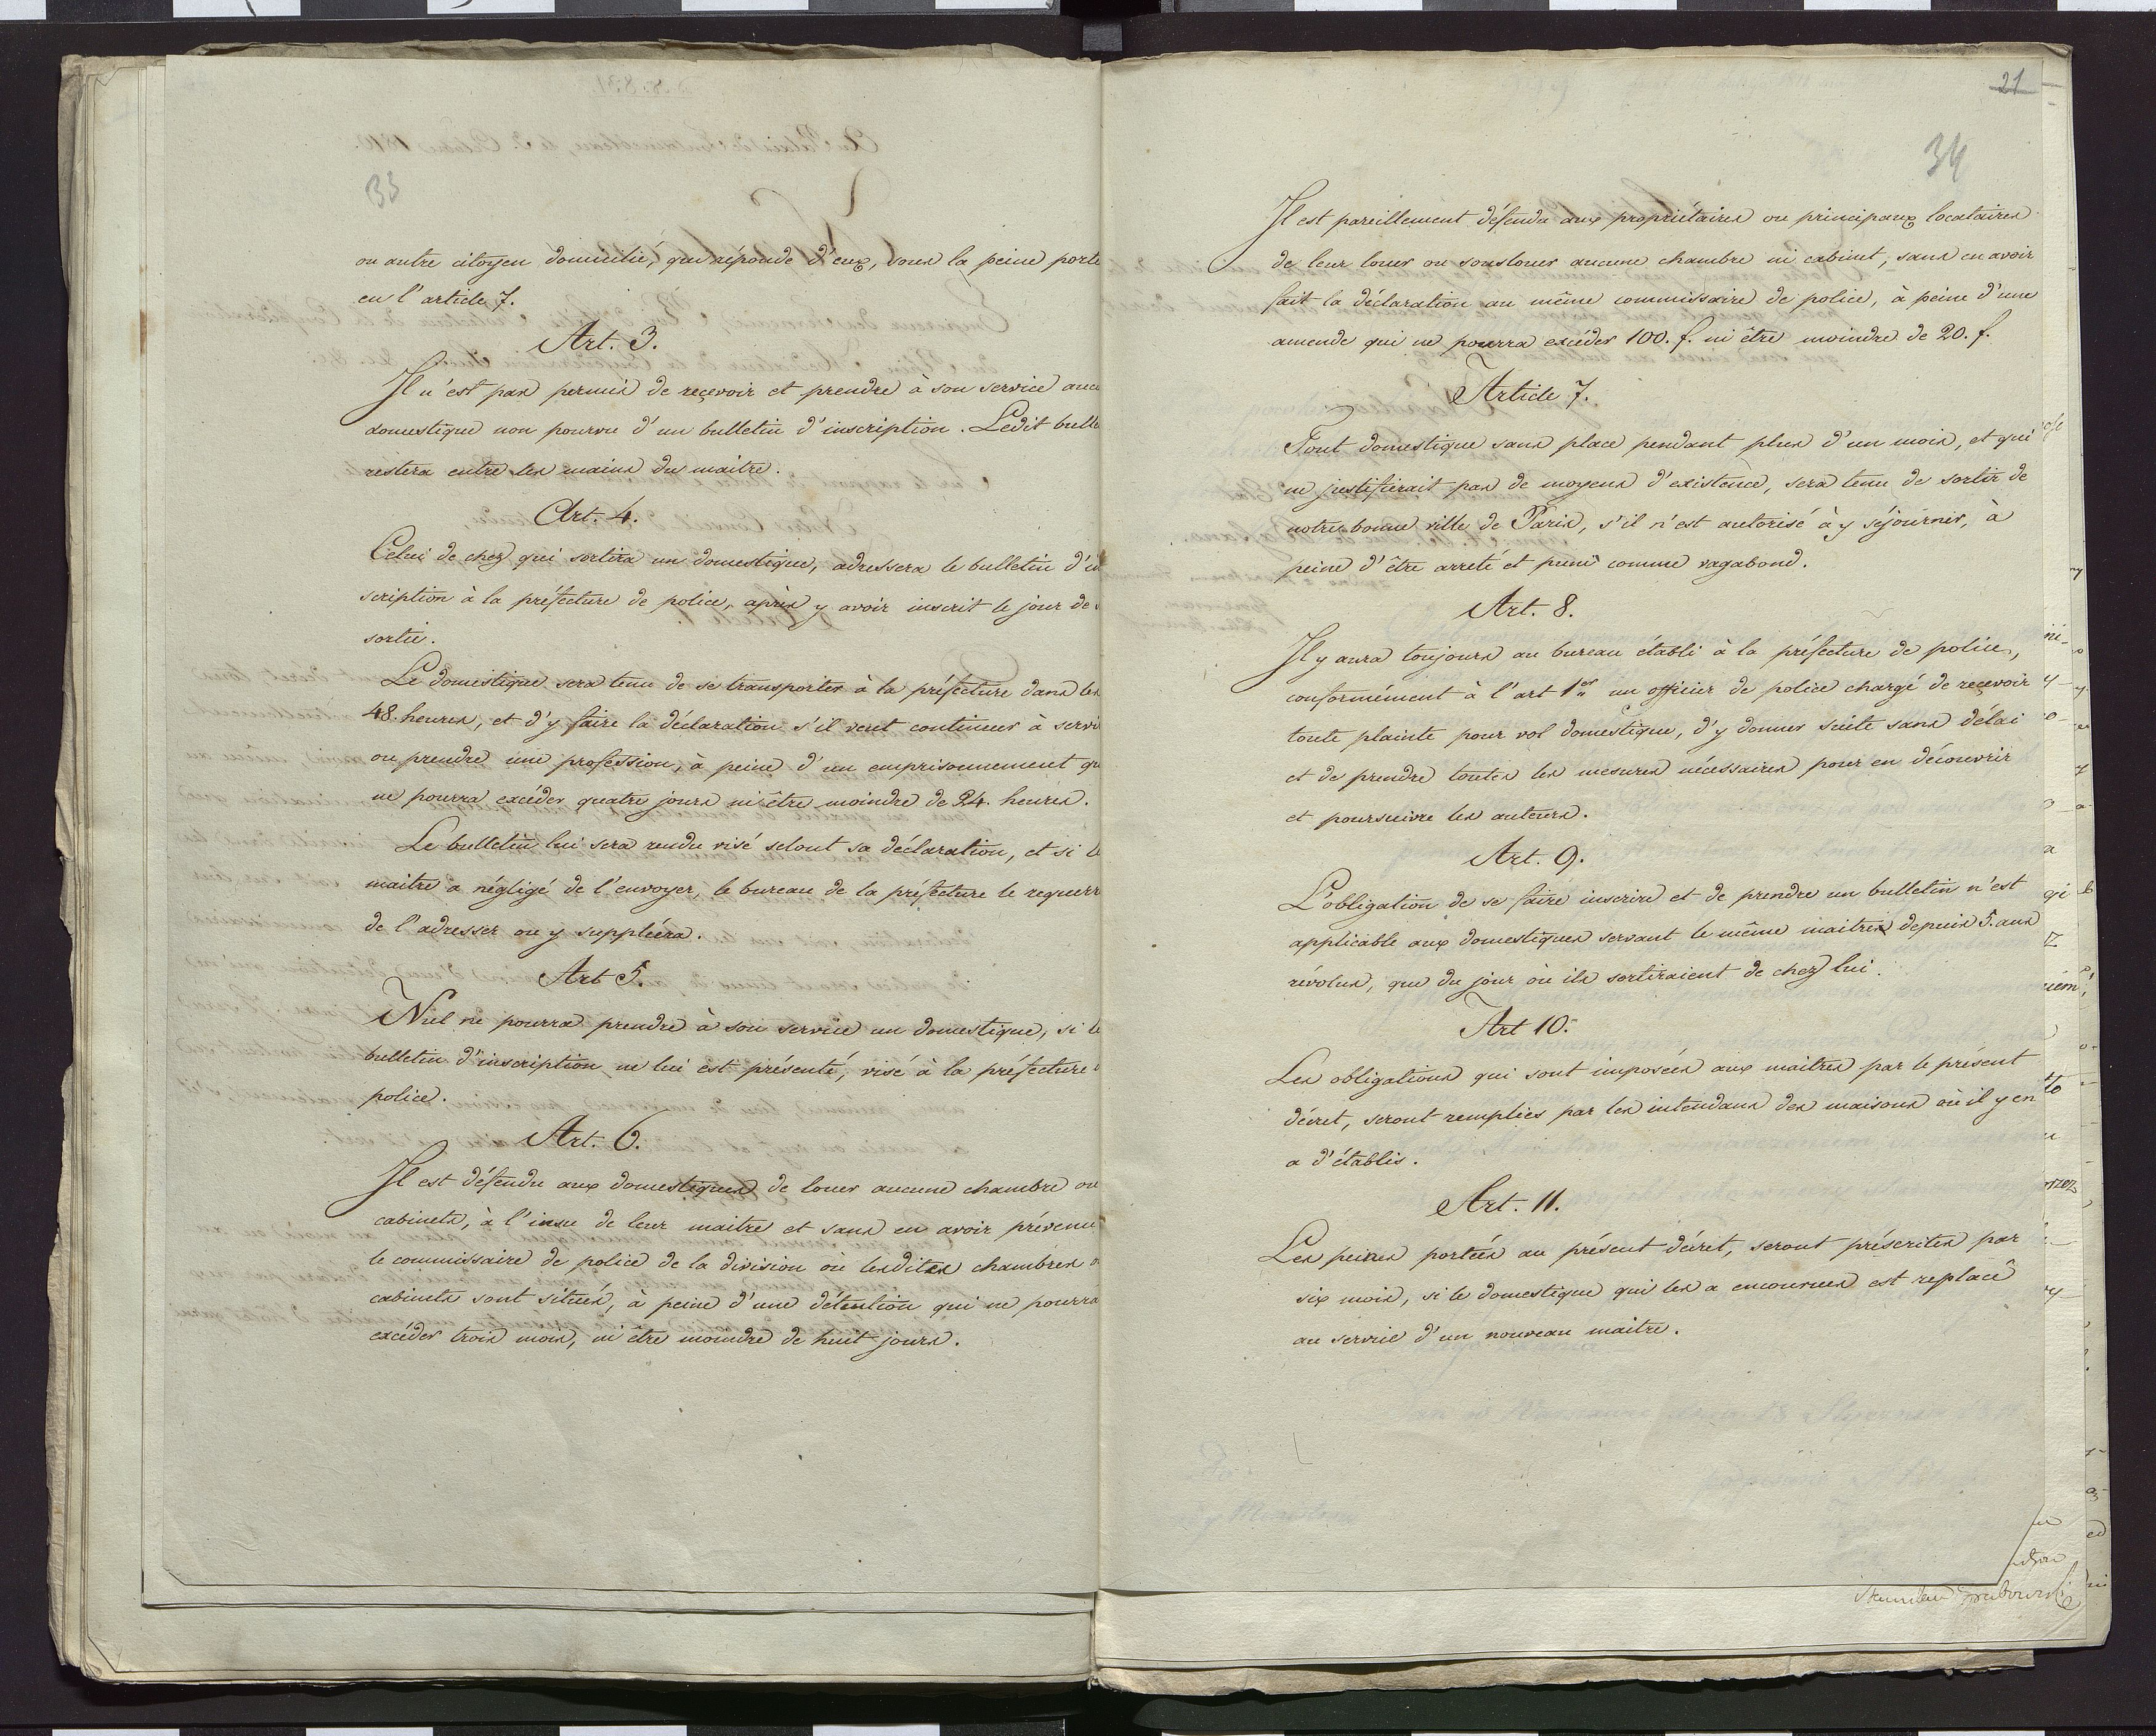 33
ou autre citoyen domicilié, qui réponde d'eux, sous la peine porté
en l'article 7.
Art. 3.
Il n'est pas permis de reçevoir et prendre à son service aucu
domestique non pourvu d'un bulletin d'inscription. Ledit bulle
restera entre les mains du maitre.
Art. 4.
Celui de chez qui sortira un domestique, adressera le bulletin d'in
scription à la préfecture de police, après y avoir inscrit le jour de s
sortie.
Le domestique sera tenu de se transporter à la préfecture dans les
48. heures, et d'y faire la déclaration s'il veut continuer à servir
ou prendre une profession, à peine d'un emprisonnement qu
ne pourra excéder quatre jours ni être moindre de 24. heures.
Le bulletin lui sera rendu visé selont sa déclaration, et si le
maitre a négligé de l'envoyer, le bureau de la préfecture le requerr
de l'adresser ou y suppléera.
Art 5.
Nul ne pourra prendre à son service un domestique, si le
bulletin d'inscription ne lui est présenté, visé à la préfecture d
police.
Art. 6.
Il est défendu aux domestiques de louer aucune chambre ou
cabinets, à l'insu de leur maitre et sans en avoir prévenu
le commissaire de police de la division où lesdites chambres o
cabinets sont situés, à peine d'une détention qui ne pourra
excéder trois mois, ni être moindre de huit jours.
21
34
Il est pareillement défendu aux propriétaires ou principaux locataires
de leur louer ou souslouer aucune chambre ni cabinet, sans en avoir
fait la déclaration au même commissaire de police, à peine d'une
amende qui ne pourra excéder 100. f. ni être moindre de 20. f.
Article 7.
Tout domestique sans place pendant plus d'un mois, et qui
ne justifierait pas de moyens d'existence, sera tenu de sortir de
notre bonne ville de Paris, s'il n'est autorisé à y séjourner, à
peine d'être arreté et puni comme vagabond.
Art. 8.
Il y aura toujours au bureau établi à la préfecture de police,
conformément à l'art 1er un officier de police chargé de reçevoir
toute plainte pour vol domestique, d'y donner suite sans délai
et de prendre toutes les mesures nécessaires pour en découvrir
et poursuivre les auteurs.
Art. 9.
L'obligation de se faire inscrire et de prendre un bulletin n'est
applicable aux domestiques servant le même maitre depuis 5. ans
révolus, que du jour où ils sortiraient de chez lui.
Art 10.
Les obligations qui sont imposées aux maitres par le présent
décret, seront remplies par les intendans des maisons où il y en
a d'établis.
Art. 11.
Les peines portées au présent décret, seront préscrites par
six mois, si le domestique qui les a encourues est replacé
au service d'un nouveau maitre.